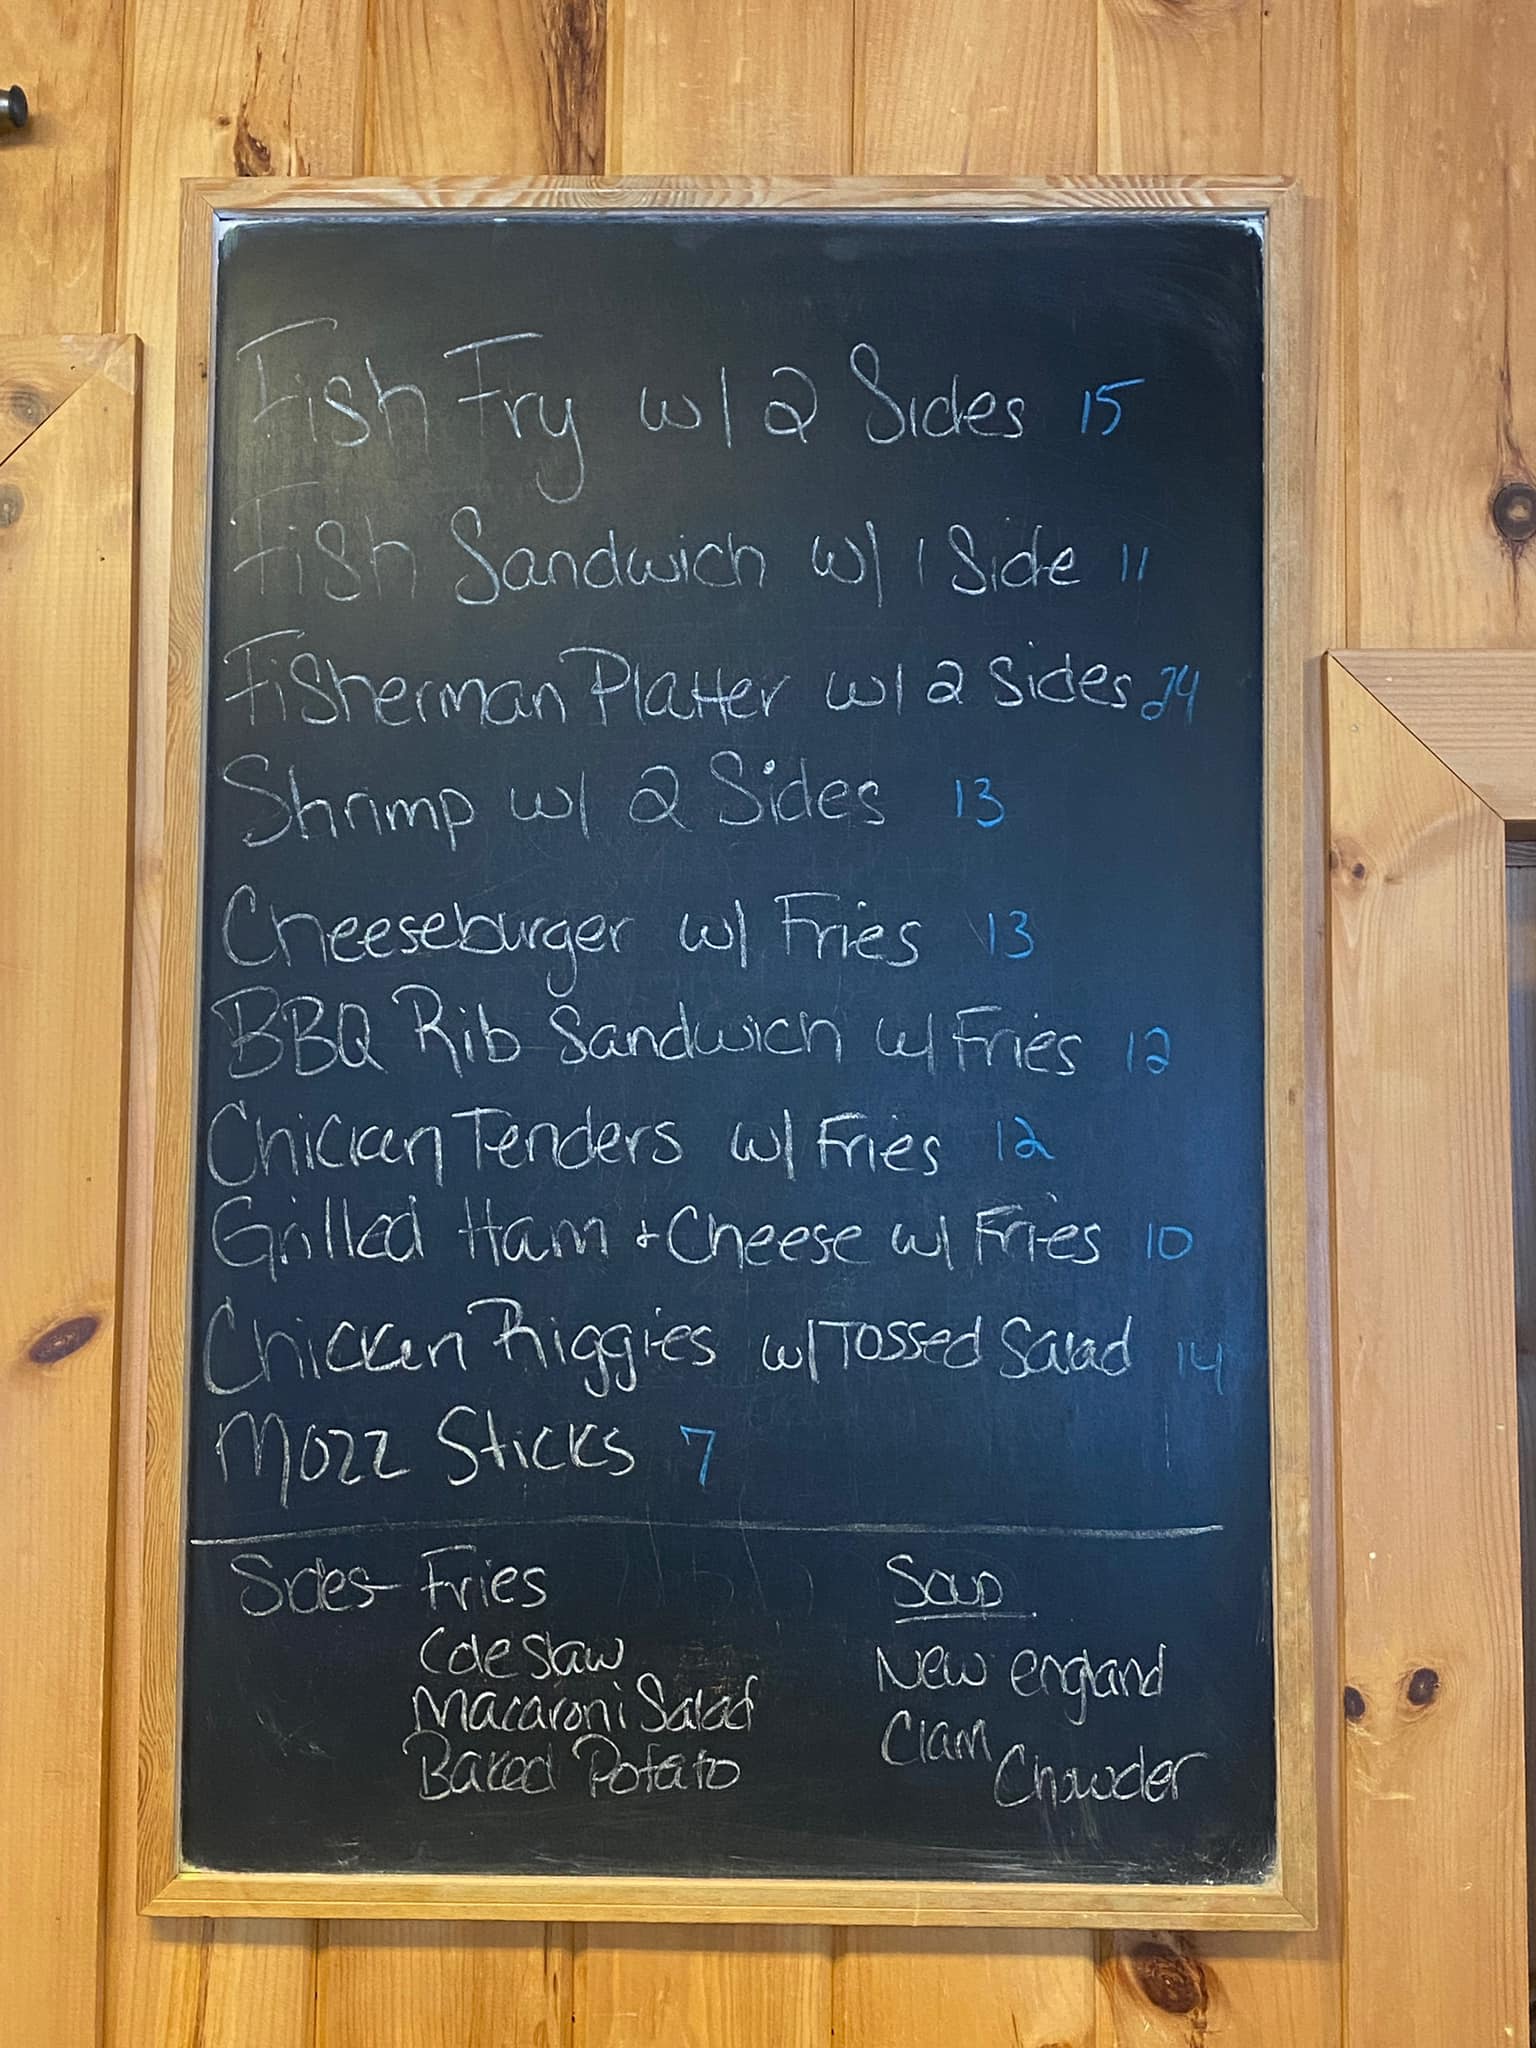 Fish Fry w/ 2 Sides 15
Fish Sandwich w/ 1 Side 11
Fisherman Platter w/ 2 Sides 24
Shrimp w/ 2 Sides 13
Cheeseburger w/ Fries 13
BBQ Rib Sandwich w/ Fries 12
Chicken Tenders w/ Fries 12
Grilled Ham + Cheese w/ Fries 10
Chicken Riggies w/ Tossed Salad 14
Mozz Sticks 7
Sides- Fries
Coleslaw
Macaroni Salad
Baked Potato
Soup
New england
Clam
Chowder